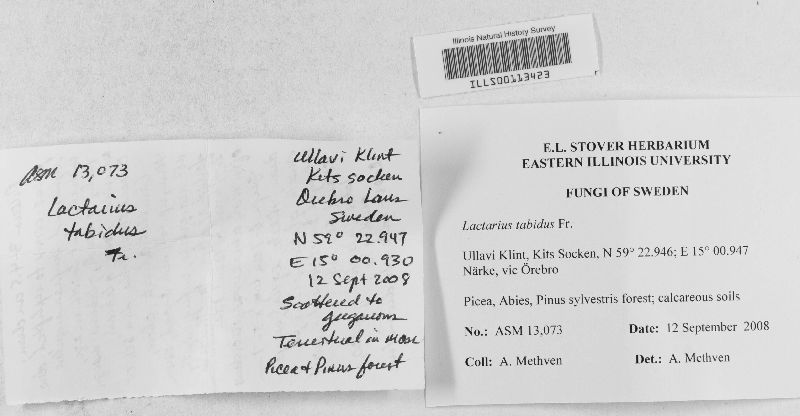 Illinois Natural History Survey
ILLS00113423
ASM 13,073
Lactarius
tabidus
Fr.
Ullavi Klint
Kits socken
Örebro Lans
Sweden
N 59° 22.947
E 15° 00.930
12 Sept 2008
Scattered to
gregarious
Terrestrial in moss
Picea & Pinus forest
E.L. STOVER HERBARIUM
EASTERN ILLINOIS UNIVERSITY
FUNGI OF SWEDEN
Lactarius tabidus Fr.
Ullavi Klint, Kits Socken, N 59° 22.946; E 15° 00.947
Närke, vic Örebro
Picea, Abies, Pinus sylvestris forest; calcareous soils
No.: ASM 13,073 Date: 12 September 2008
Coll: A. Methven Det.: A. Methven